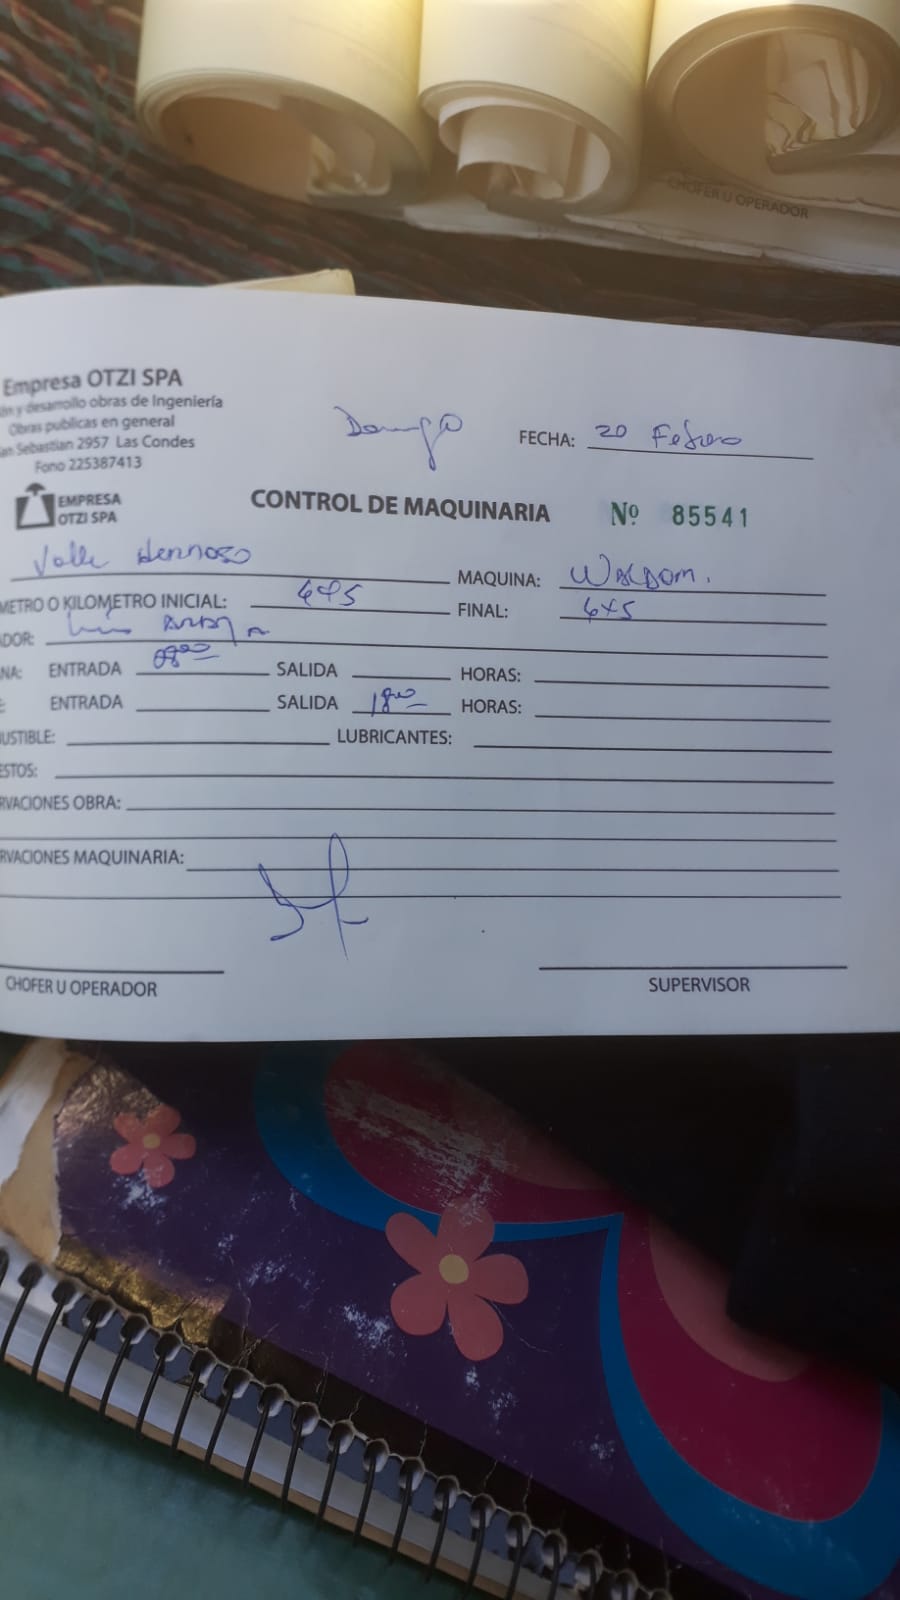 CHOFER U OPERADOR
Empresa OTZI SPA
ón y desarrollo obras de Ingeniería
Obras publicas en general
an Sebastian 2957 Las Condes
Fono 225387413
EMPRESA
OTZI SPA
Domingo
FECHA: 20 Febrero
CONTROL DE MAQUINARIA Nº 85541
Valle Hermoso MAQUINA:
METRO O KILOMETRO INICIAL: FINAL:
ADOR: Luis
NA: ENTRADA 08:00 SALIDA HORAS:
E: ENTRADA SALIDA 18:00 HORAS:
USTIBLE: LUBRICANTES:
ESTOS:
RVACIONES OBRA:
RVACIONES MAQUINARIA:
CHOFER U OPERADOR SUPERVISOR